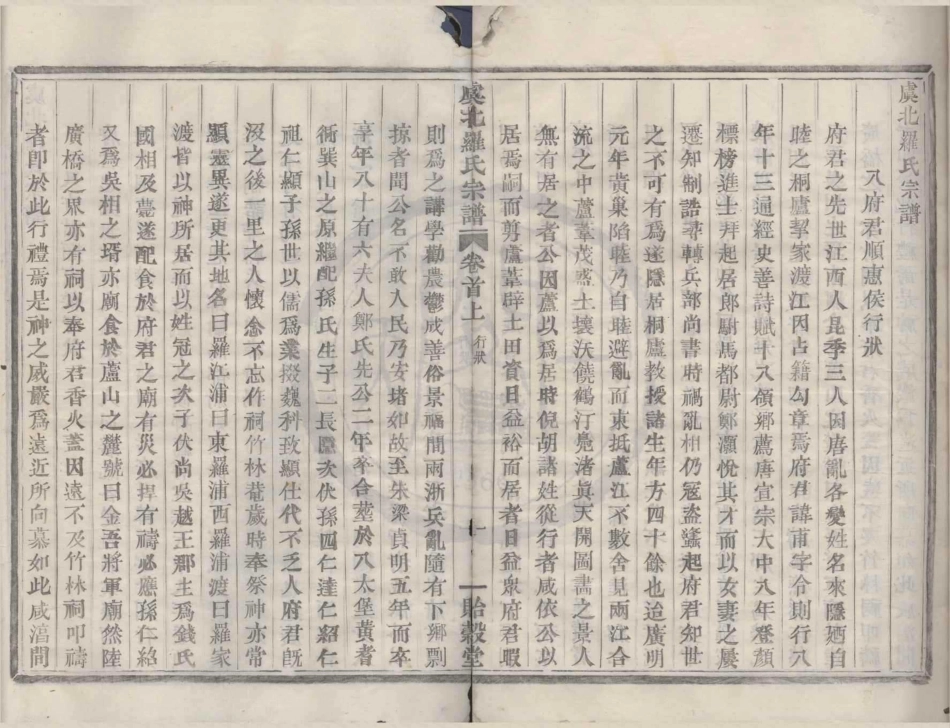 虞北羅氏宗譜
八府君順惠侯行狀
府君之先世江西人昆季三人因唐亂各變姓名來隱廼自
睦之桐廬挈家渡江因占籍勾章焉府君諱甫字令則行八
年十三通經史善詩賦十八領鄉薦唐宣宗大中八年登顏
標榜進士拜起居郎尉馬都尉鄭灝悅其才而以女妻之屢
遷知制誥尋轉兵部尚書時禍亂相仍寇盜蠭起府君知世
之不可有爲遂隱居桐廬教授諸生年方四十餘也迨廣明
元年黃巢陷睦乃自睦避亂而東抵蘆江不數舍見兩江合
流之中蘆葦茂盛土壤沃饒鶴汀鳧渚眞天開圖畵之景人
無有居之者公因蘆以爲居時倪胡諸姓從行者咸依公以
居焉嗣而剪蘆葦辟土田賨日益裕而居者日益衆府君暇
虞北羅氏宗譜 卷首上 行狀 七 貽穀堂
則爲之講學勸農鬱成善俗景福間兩浙兵亂隨有下鄉剽
掠者聞公名不敢入民乃安堵如故至朱梁貞明五年而卒
享年八十有六夫人鄭氏先公二年卒合塟於八太堡黃耆
術巽山之原繼配孫氏生子二長匯次伏孫四仁達仁紹仁
祖仁顯子孫世以儒爲業掇巍科致顯仕代不乏人府君旣
沒之後一里之人懷念不忘作祠竹林菴歲時奉祭神亦常
顯靈異遂更其地名曰羅江浦曰東羅浦西羅浦渡曰羅家
渡皆以神所居而以姓冠之次子伏尚吳越王郡主爲錢氏
國相及薨遂配食於府君之廟有災必捍有禱必應孫仁紹
又爲吳相之壻亦廟食於蘆山之麓號曰金吾將軍廟然陸
廣橋之界亦有祠以奉府君香火蓋因遠不及竹林祠叩禱
者卽於此行禮焉是神之威嚴爲遠近所向慕如此咸湻間